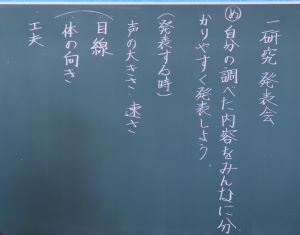 一研究 発表会
め 自分の調べた内容をみんなに分
かりやすく発表しよう
(発表する時)
声の大きさ・速さ
目線
(体の向き)
・工夫